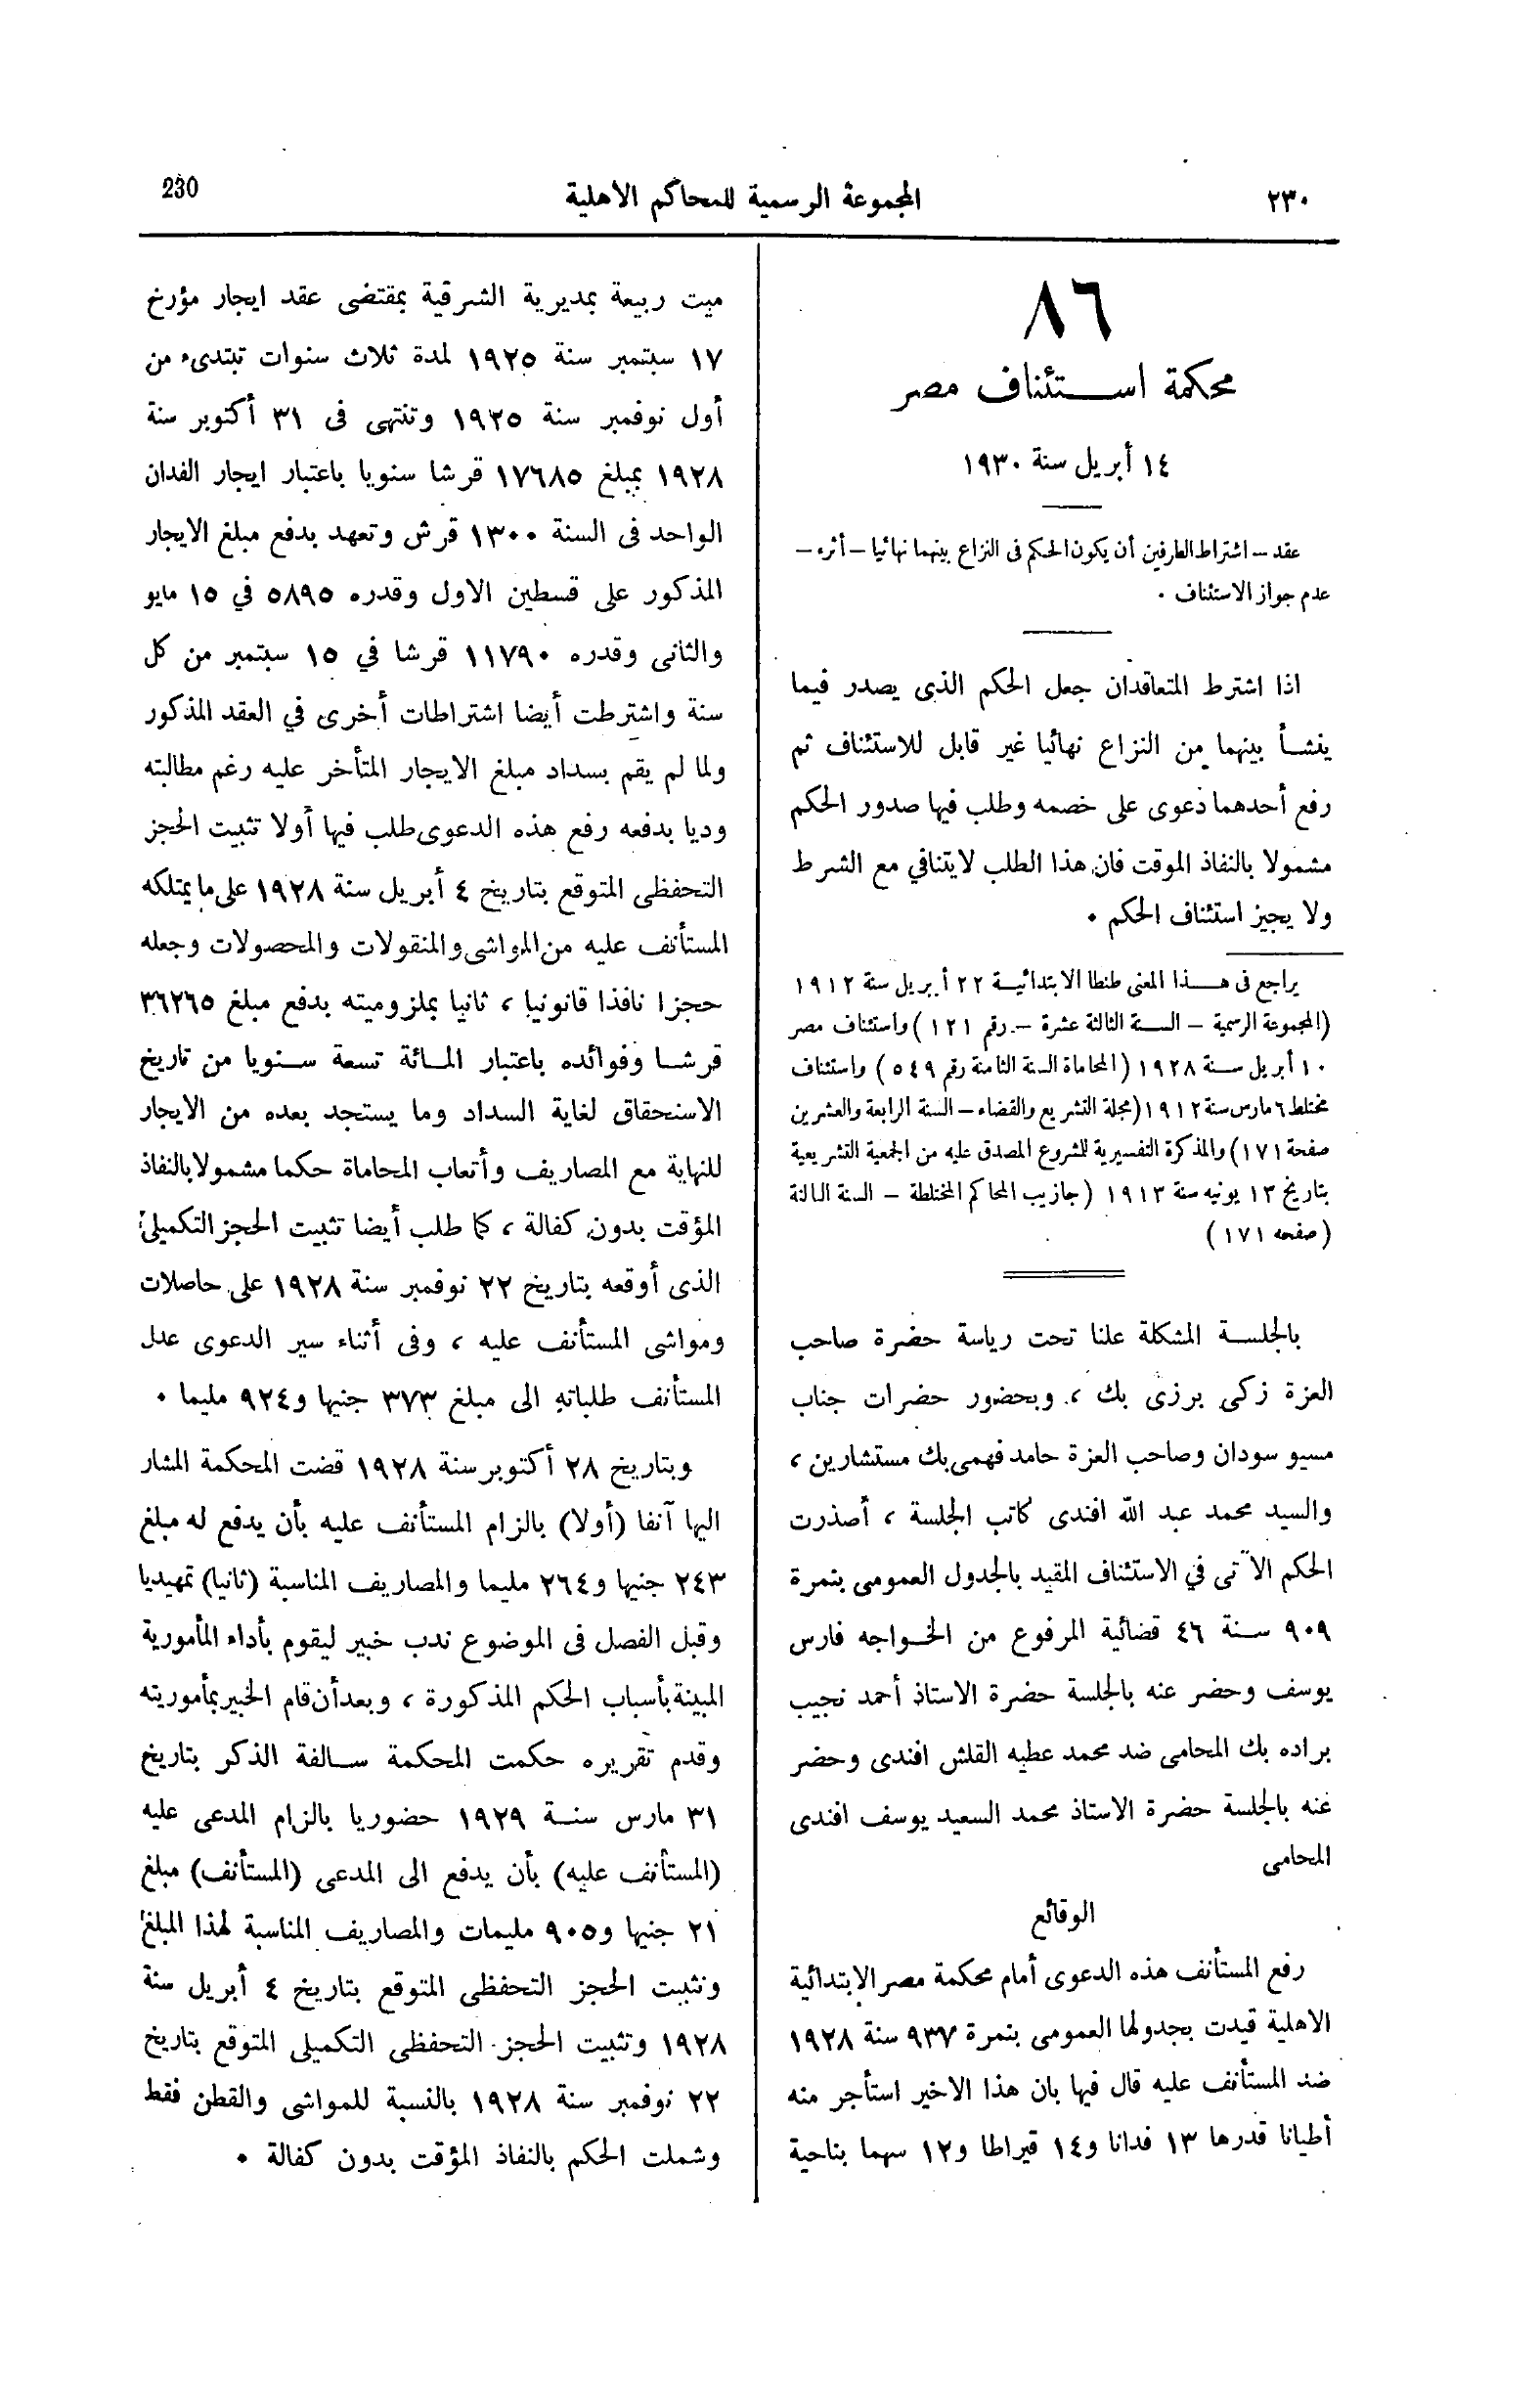 ٢٣٠
المجموعة الرسمية للمحاكم الاهلية
230
٨٦
محكمة استئناف مصر
١٤ أبريل سنة ١٩٣٠
عقد – اشتراط الطرفين أن يكون الحكم فى النزاع بينهما نهائيا – أثره –
عدم جواز الاستئناف ٠
اذا اشترط المتعاقدان جعل الحكم الذى يصدر فيما
ينشأ بينهما من النزاع نهائيا غير قابل للاستئناف ثم
رفع أحدهما دعوى على خصمه وطلب فيها صدور الحكم
مشمولا بالنفاذ الموقت فان هذا الطلب لا يتنافي مع الشرط
ولا يجيز استئناف الحكم ٠
يراجع فى هذا المعنى طنطا الابتدائية ٢٢ أبريل سنة ١٩١٢
(المجموعة الرسمية – السنة الثالثة عشرة – رقم ١٢١) واستئناف مصر
١٠ أبريل سنة ١٩٢٨ (المحاماة السنة الثامنة رقم ٥٤٩) واستئناف
مختلط ٦ مارس سنة ١٩١٢ (مجلة التشريع والقضاء – السنة الرابعة والعشرين
صفحة ١٧١) والمذكرة التفسيرية للشروع المصدق عليه من الجمعية التشريعية
بتاريخ ١٣ يونيه سنة ١٩١٣ (جازيب المحاكم المختلطة – السنة الثالثة
(صفحه ١٧١)
بالجلسة المشكلة علنا تحت رياسة حضرة صاحب
العزة زكى برزى بك ، وبحضور حضرات جناب
مسيو سودان وصاحب العزة حامد فهمى بك مستشارين ،
والسيد محمد عبد الله افندى كاتب الجلسة ، أصدرت
الحكم الآتى في الاستئناف المقيد بالجدول العمومى بنمرة
٩٠٩ سنة ٤٦ قضائية المرفوع من الخواجه فارس
يوسف وحضر عنه بالجلسة حضرة الاستاذ أحمد نجيب
براده بك المحامى ضد محمد عطيه القلش افندى وحضر
عنه بالجلسة حضرة الاستاذ محمد السعيد يوسف افندى
المحامى
الوقائع
رفع المستأنف هذه الدعوى أمام محكمة مصر الابتدائية
الاهلية قيدت بجدولها العمومى بنمرة ٩٣٧ سنة ١٩٢٨
ضد المستأنف عليه قال فيها بان هذا الاخير استأجر منه
أطيانا قدرها ١٣ فدانا و١٤ قيراطا و١٢ سهما بناحية
ميت ربيعة بمديرية الشرقية بمقتضى عقد ايجار مؤرخ
١٧ سبتمبر سنة ١٩٢٥ لمدة ثلاث سنوات تبتدىء من
أول نوفمبر سنة ١٩٢٥ وتنتهى فى ٣١ أكتوبر سنة
١٩٢٨ بمبلغ ١٧٦٨٥ قرشا سنويا باعتبار ايجار الفدان
الواحد فى السنة ١٣٠٠ قرش وتعهد بدفع مبلغ الايجار
المذكور على قسطين الاول وقدره ٥٨٩٥ في ١٥ مايو
والثانى وقدره ١١٧٩٠ قرشا في ١٥ سبتمبر من كل
سنة واشترطت أيضا اشتراطات أخرى في العقد المذكور
ولما لم يقم بسداد مبلغ الايجار المتأخر عليه رغم مطالبته
وديا بدفعه رفع هذه الدعوى طلب فيها أولا تثبيت الحجز
التحفظى المتوقع بتاريخ ٤ أبريل سنة ١٩٢٨ على ما يمتلكه
المستأنف عليه من المواشى والمنقولات والمحصولات وجعله
حجزا نافذا قانونيا ، ثانيا بملزوميته بدفع مبلغ ٣٦٢٦٥
قرشا وفوائده باعتبار المائة تسعة سنويا من تاريخ
الاستحقاق لغاية السداد وما يستجد بعده من الايجار
للنهاية مع المصاريف وأتعاب المحاماة حكما مشمولا بالنفاذ
المؤقت بدون كفالة ، كما طلب أيضا تثبيت الحجز التكميلى
الذى أوقعه بتاريخ ٢٢ نوفمبر سنة ١٩٢٨ على حاصلات
ومواشى المستأنف عليه ، وفى أثناء سير الدعوى عدل
المستأنف طلباته الى مبلغ ٣٧٣ جنيها و٩٢٤ مليما ٠
وبتاريخ ٢٨ أكتوبر سنة ١٩٢٨ قضت المحكمة المشار
اليها آنفا (أولا) بالزام المستأنف عليه بأن يدفع له مبلغ
٢٤٣ جنيها و٢٦٤ مليما والمصاريف المناسبة (ثانيا) تمهيديا
وقبل الفصل فى الموضوع ندب خبير ليقوم بأداء المأمورية
المبينة بأسباب الحكم المذكورة ، وبعد أن قام الخبير بمأموريته
وقدم تقريره حكمت المحكمة سالفة الذكر بتاريخ
٣١ مارس سنة ١٩٢٩ حضوريا بالزام المدعى عليه
(المستأنف عليه) بأن يدفع الى المدعى (المستأنف) مبلغ
٢١ جنيها و٩٠٥ مليمات والمصاريف المناسبة لهذا المبلغ
وتثبيت الحجز التحفظى المتوقع بتاريخ ٤ أبريل سنة
١٩٢٨ وتثبيت الحجز التحفظى التكميلى المتوقع بتاريخ
٢٢ نوفمبر سنة ١٩٢٨ بالنسبة للمواشى والقطن فقط
وشملت الحكم بالنفاذ المؤقت بدون كفالة ٠